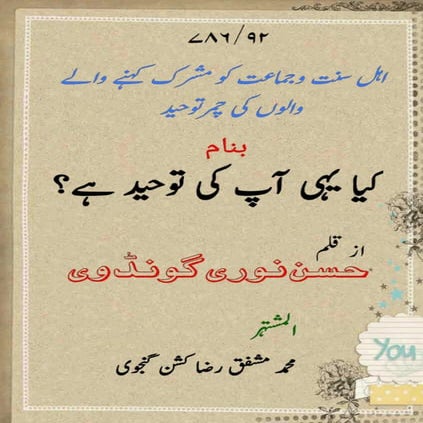 ۷۸۶/۹۲
اہل سنت وجماعت کو مشرک کہنے والے
والوں کی چمر توحید
بنام
کیا یہی آپ کی توحید ہے؟
از قلم
حسن نوری گونڈوی
المشتہر
محمد مشفق رضا کشن گنجوی
You